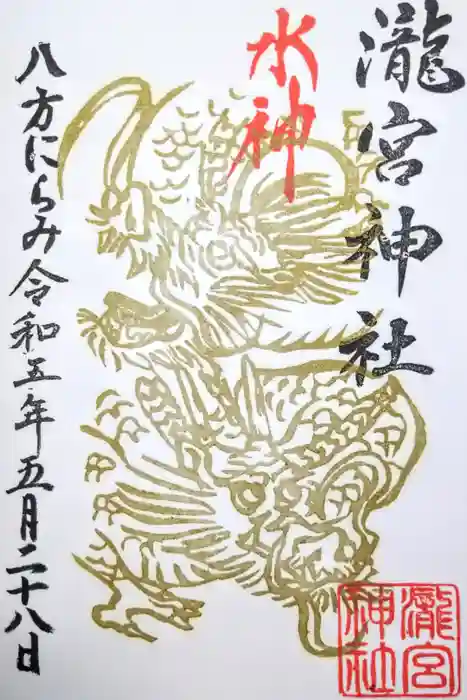 瀧宮神社
水神
八方にらみ 令和五年五月二十八日
瀧宮
神社